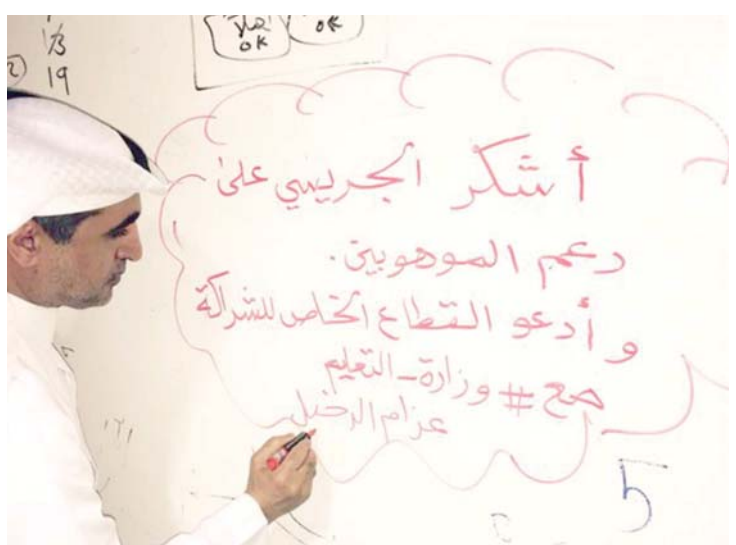 1/3
2)
19
OK
OK
أشكر الجريسي على
دعم الموهوبين.
و أدعو القطاع الخاص للشراكة
مع # وزارة_التعليم
عزام الدخيل
5